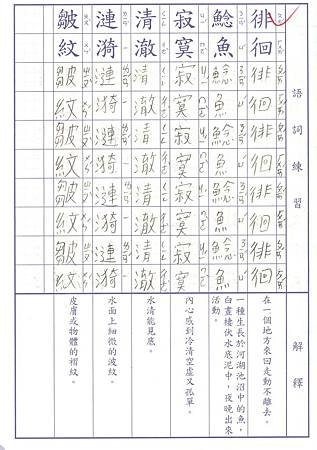 語詞練習
解釋
徘徊
徘徊徘徊徘徊徘徊
在一個地方來回走動不離去。
鯰魚
鯰魚鯰魚鯰魚鯰魚
一種生長於河湖池沼中的魚，
白晝棲伏水底泥中，夜晚出來
活動。
寂寞
寂寞寂寞寂寞寂寞
內心感到冷清空虛又孤單。
清澈
清澈清澈清澈清澈
水清能見底。
漣漪
漣漪漣漪漣漪漣漪
水面上細微的波紋。
皺紋
皺紋皺紋皺紋皺紋
皮膚或物體的褶紋。